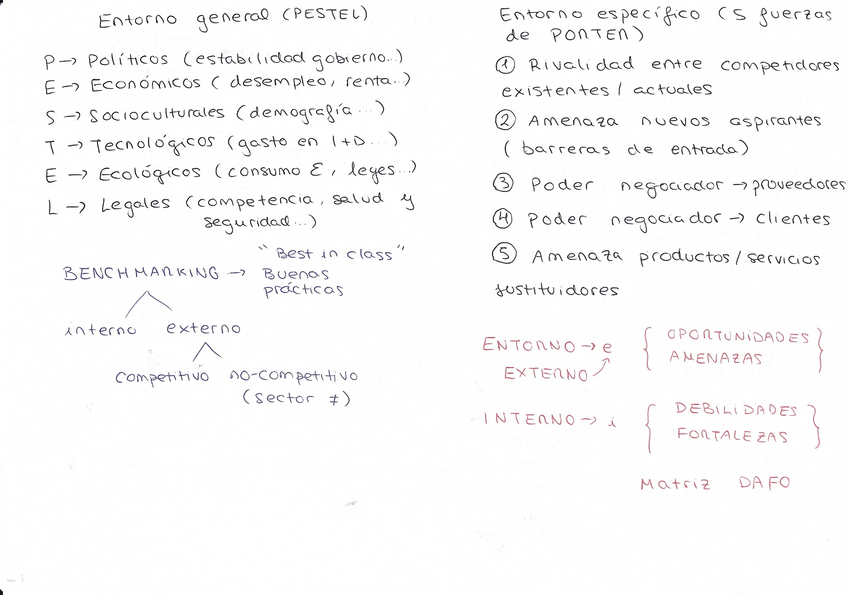 Entorno general (PESTEL)
P → Políticos (estabilidad gobierno...)
E → Económicos (desempleo, renta...)
S → Socioculturales (demografía ...)
T → Tecnológicos (gasto en I+D...)
E → Ecológicos (consumo E, leyes...)
L → Legales (competencia, salud y
seguridad...)
"Best in class"
BENCHMARKING → Buenas
prácticas
interno externo
competitivo no-competitivo
(sector ≠)
Entorno específico (5 fuerzas
de PORTER)
① Rivalidad entre competidores
existentes / actuales
② Amenaza nuevos aspirantes
(barreras de entrada)
③ Poder negociador → proveedores
④ Poder negociador → clientes
⑤ Amenaza productos / servicios
sustituidores
ENTORNO → e { OPORTUNIDADES
AMENAZAS }
EXTERNO
INTERNO → i { DEBILIDADES
FORTALEZAS }
Matriz DAFO